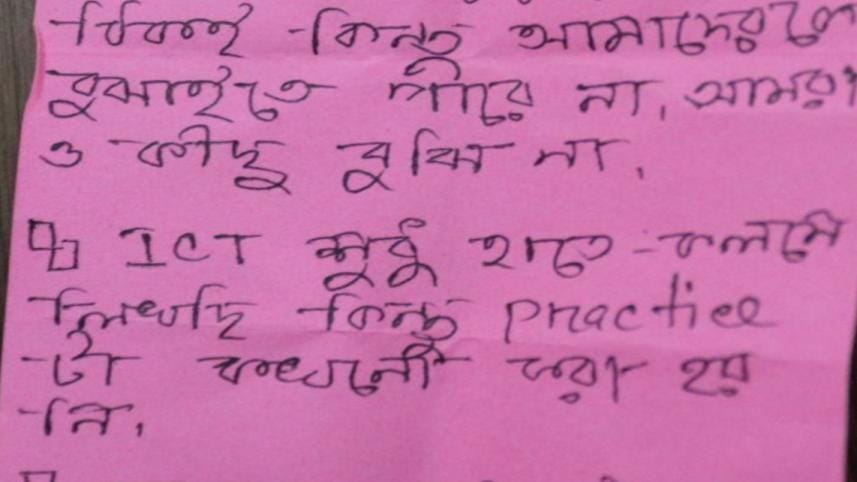 ঠিকই কিন্তু আমাদেরকে
বুঝাইতে পারে না, আমরা
ও কীছু বুঝি না,
ICT শুধু হাতে-কলমে
লিখছি কিন্তু practice
টা কখনো করা হয়
নি,